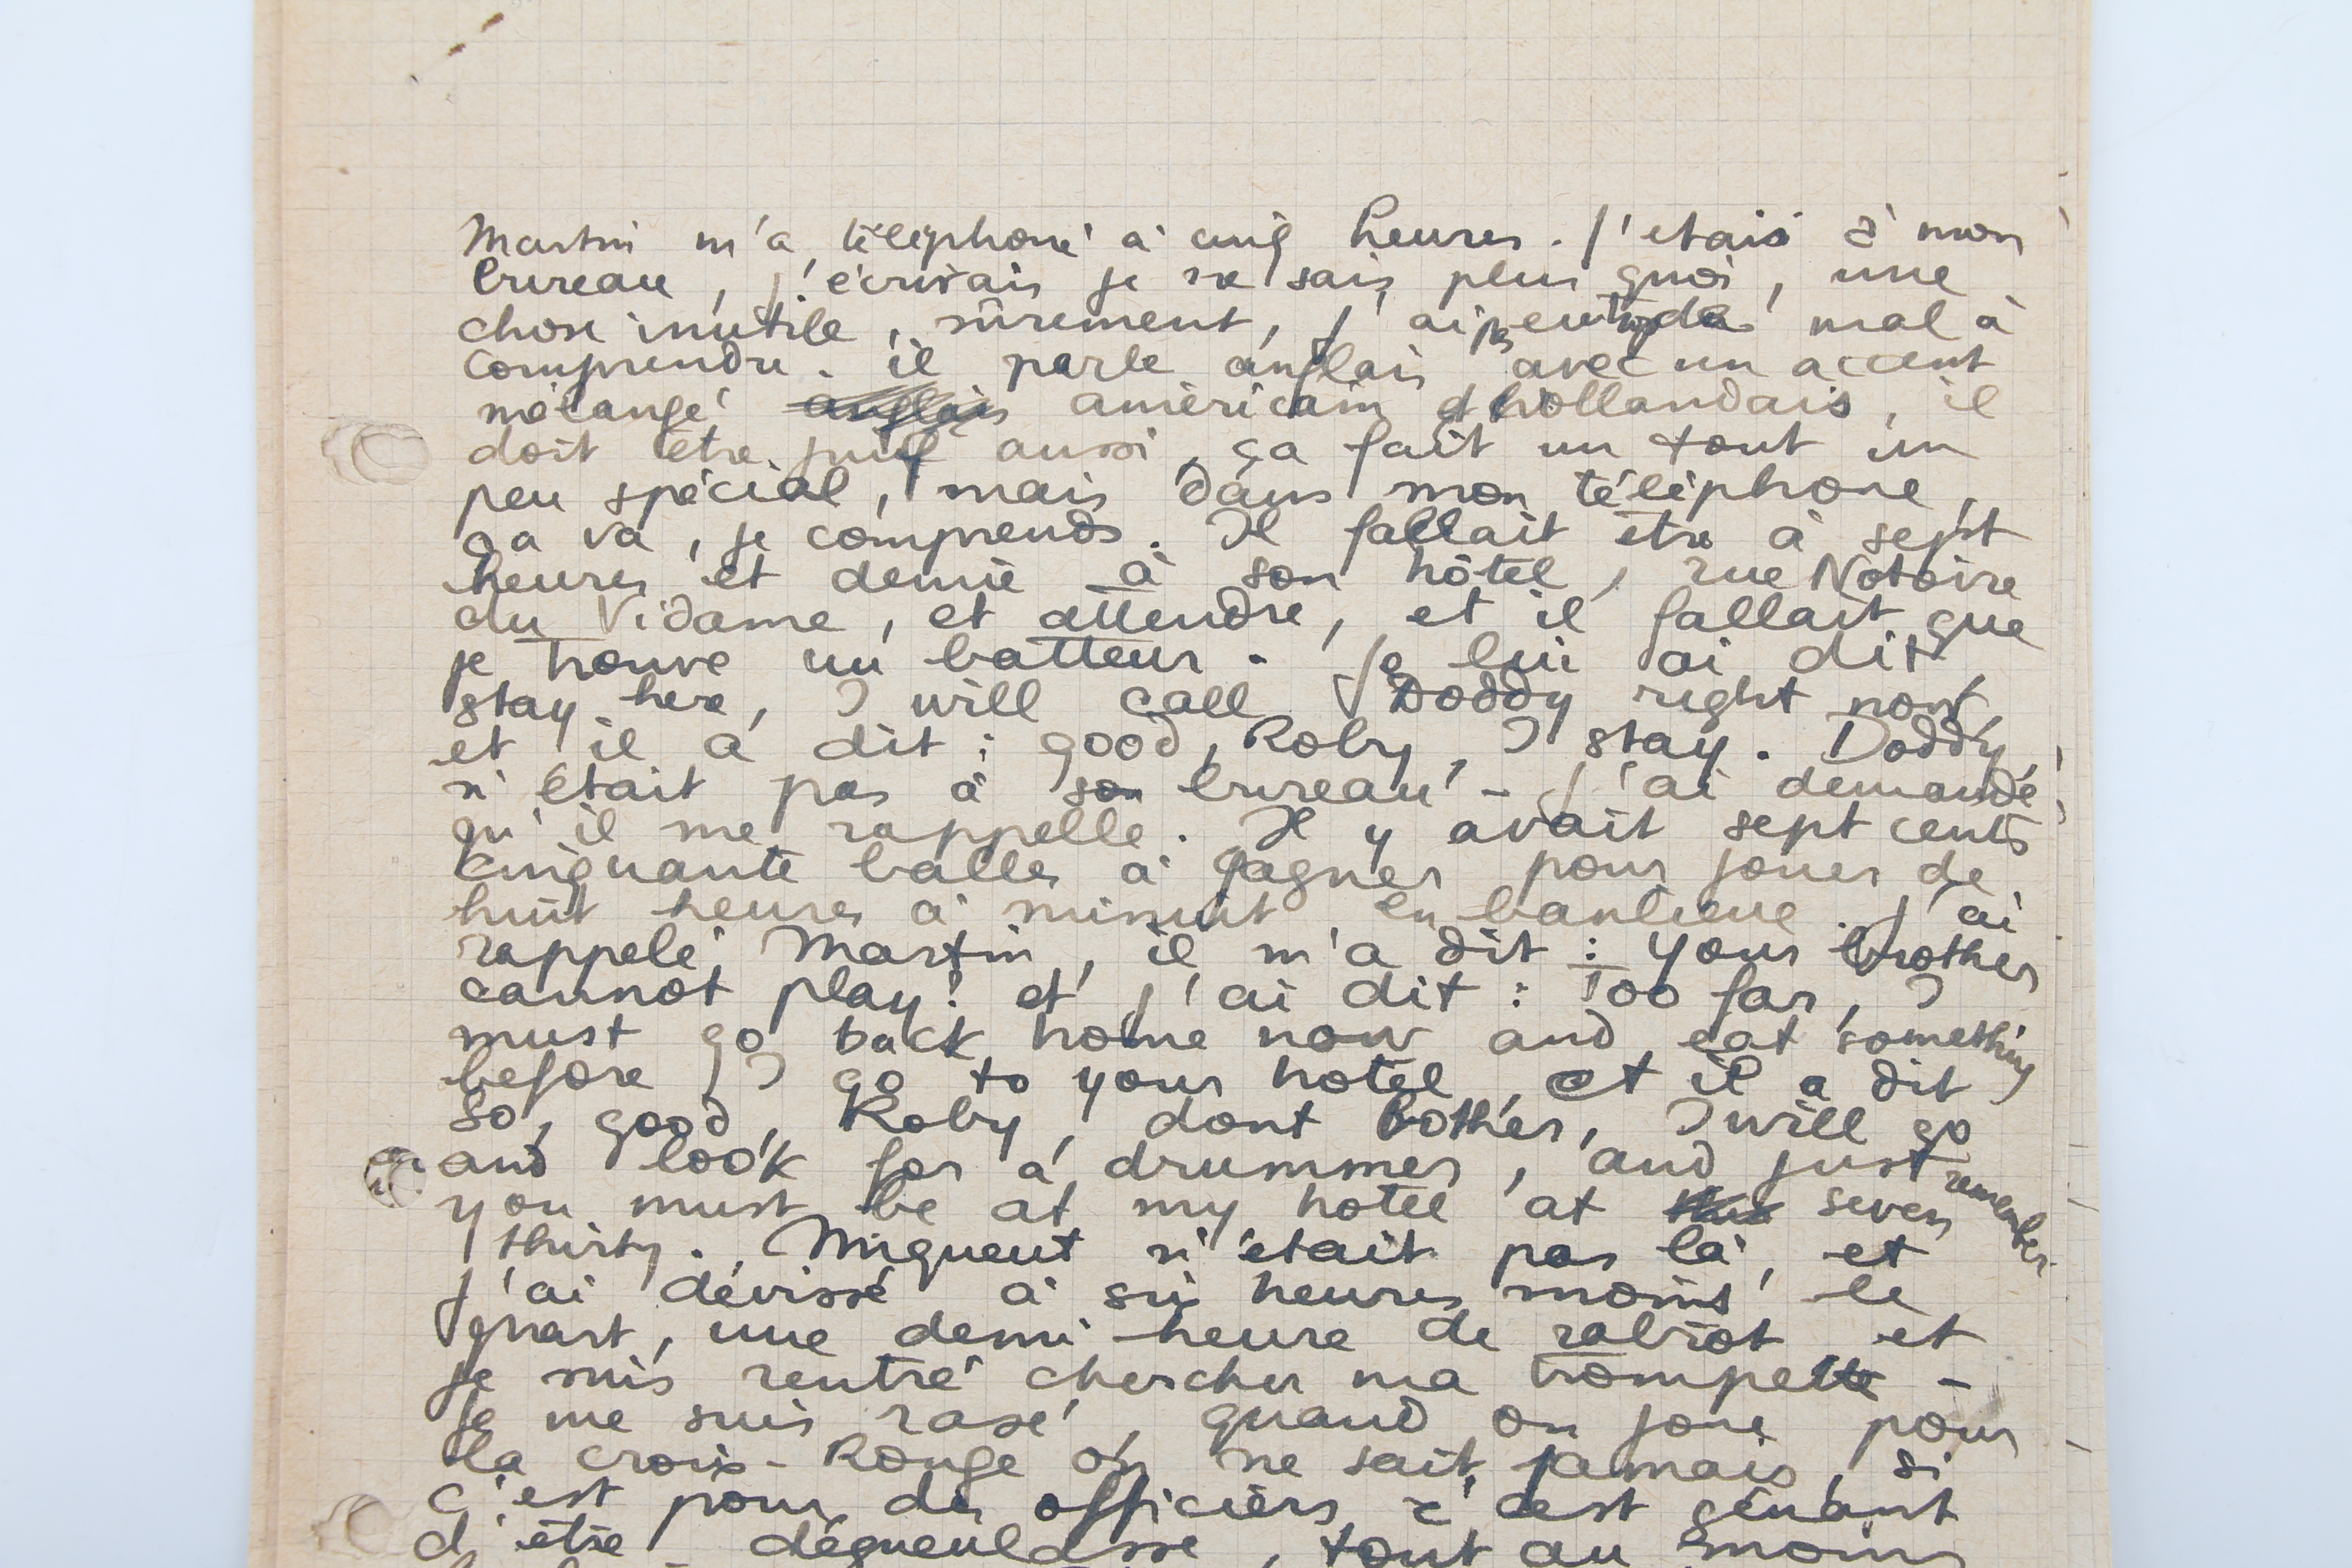 Martin m'a téléphoné à cinq heures. J'etais à mon
bureau, j'écrivais je ne sais plus quoi, une
chose inutile, sûrement, j'ai pas eu trop de mal à
comprendre. il parle anglais avec un accent
mélangé américain et hollandais, il
doit être juif aussi, ça fait un tout un
peu spécial, mais dans mon téléphone,
ça va, je comprends. Il fallait être à sept
heures et demie à son hôtel, rue Notoire
du Vidame, et attendre, et il fallait que
je trouve un batteur. Je lui ai dit
stay here, I will call Doddy right now,
et il a dit : good, Roby, I stay. Doddy
n'était pas à son bureau - J'ai demandé
qu'il me rappelle. Il y avait sept cents
cinquante balles à gagner pour jouer de
huit heures à minuit en banlieue. J'ai
rappelé Martin, il m'a dit : your brother
cannot play? et j'ai dit : Too far, I
must go back home now and eat something
before I go to your hotel, et il a dit
So, good, Roby, dont bother, I will go
and look for a drummer, and just remember
you must be at my hotel at seven
thirty. Miqueut n'était pas là, et
j'ai dévissé à six heures moins le
quart, une demi-heure de rabiot et
je suis rentré chercher ma trompette -
Je me suis rasé, quand on joue pour
la croix-Rouge on ne sait jamais, si
c'est pour des officiers c'est gênant
d'être dégueulasse, tout au moins